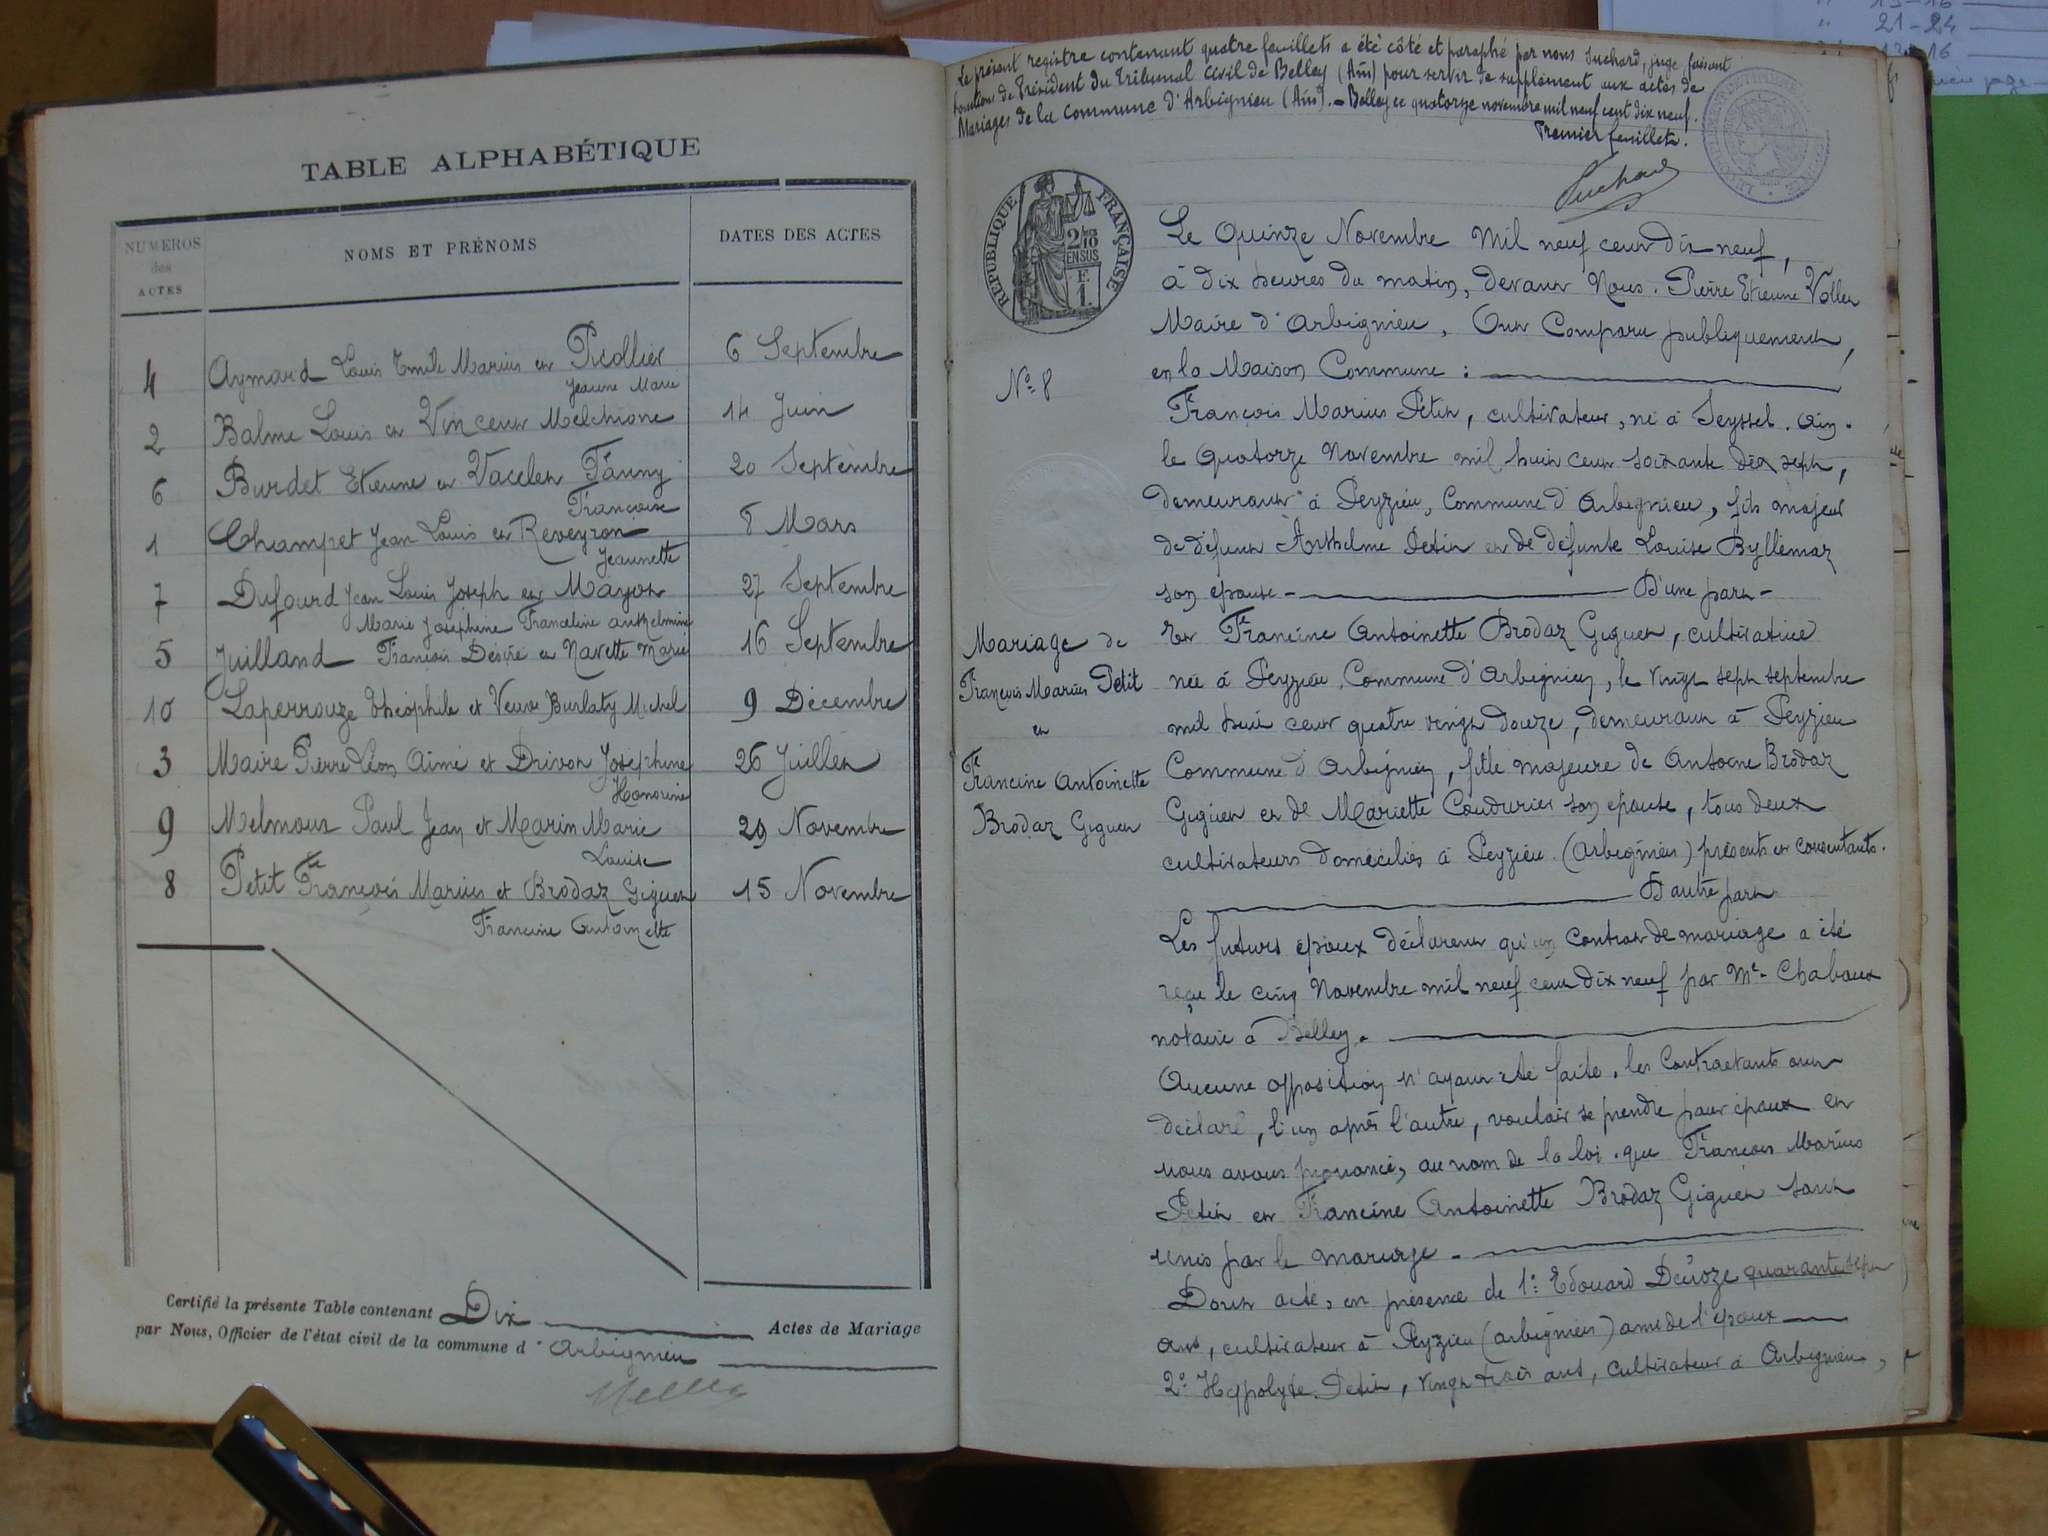 TABLE ALPHABÉTIQUE
NUMEROS des ACTES
NOMS ET PRÉNOMS
DATES DES ACTES
4 Aymard Louis Emile Marius et Picollier 6 Septembre
Jeanne Marie
2 Balme Louis et Vincent Melchione 14 Juin
6 Burdet Etienne et Vacelet Fanny 20 Septembre
Françoise
1 Champet Jean Louis et Reveyron 8 Mars
Jeannette
7 Dufourd Jean Louis Joseph et Mayot 27 Septembre
Marie Joséphine Franceline anthelmine
5 Juilland François Désiré et Navette Marie 16 Septembre
10 Laperrouze théophile et Veuve Burlaty Michel 9 Décembre
3 Maire Pierre Léon Aimé et Drivon Joséphine 26 Juillet
Honorine
9 Melmoux Paul Jean et Marin Marie 29 Novembre
Louise
8 Petit François Marius et Brodaz Giguet 15 Novembre
Francine Antoinette
Certifié la présente Table contenant Dix Actes de Mariage
par Nous, Officier de l'état civil de la commune d'Arbignieu
Le présent registre contenant quatre feuillets a été côté et paraphé par nous Suchard, juge faisant
fonctions de Président du Tribunal Civil de Belley (Ain) pour servir de supplément aux actes de
Mariages de la Commune d'Arbignieu (Ain). - Belley ce quatorze novembre mil neuf cent dix neuf.
Premier feuillet.
Suchard
REPUBLIQUE FRANÇAISE
2/10
EN SUS
F.
1.
Le Quinze Novembre Mil neuf cent dix neuf,
à dix heures du matin, devant Nous. Pierre Etienne Vollet
Maire d'Arbignieu, Ont Comparu publiquement,
en la Maison Commune :
No 8
François Marius Petit, cultivateur, né à Seyssel. Ain.
le Quatorze Novembre mil huit cent soixante dix sept,
demeurant à Peyzieu, Commune d'Arbignieu, fils majeur
de défunt Anthelme Petit et de défunte Louise Byllemaz
son épouse - D'une part -
Mariage de
François Marius Petit
et
Francine Antoinette
Brodaz Giguet
Et Francine Antoinette Brodaz Giguet, cultivatrice
née à Peyzieu, Commune d'Arbignieu, le vingt sept septembre
mil huit cent quatre vingt douze, demeurant à Peyzieu
Commune d'Arbignieu, fille majeure de Antoine Brodaz
Giguet et de Mariette Coudurier son épouse, tous deux
cultivateurs domiciliés à Peyzieu (Arbignieu) présents et consentants.
D'autre part
Les futurs époux déclarent qu'un contrat de mariage a été
reçu le cinq Novembre mil neuf cent dix neuf par Me Chaboux
notaire à Belley.
Aucune opposition n'ayant été faite, les Contractants ont
déclaré, l'un après l'autre, vouloir se prendre pour époux et
nous avons prononcé, au nom de la loi. que François Marius
Petit et Francine Antoinette Brodaz Giguet sont
unis par le mariage -
Dont acte, en présence de 1º Edouard Deüoze quarante sept
ans, cultivateur à Peyzieu (arbignieu) ami de l'époux
2º Hyppolyte Petit, vingt trois ans, cultivateur à Arbignieu,